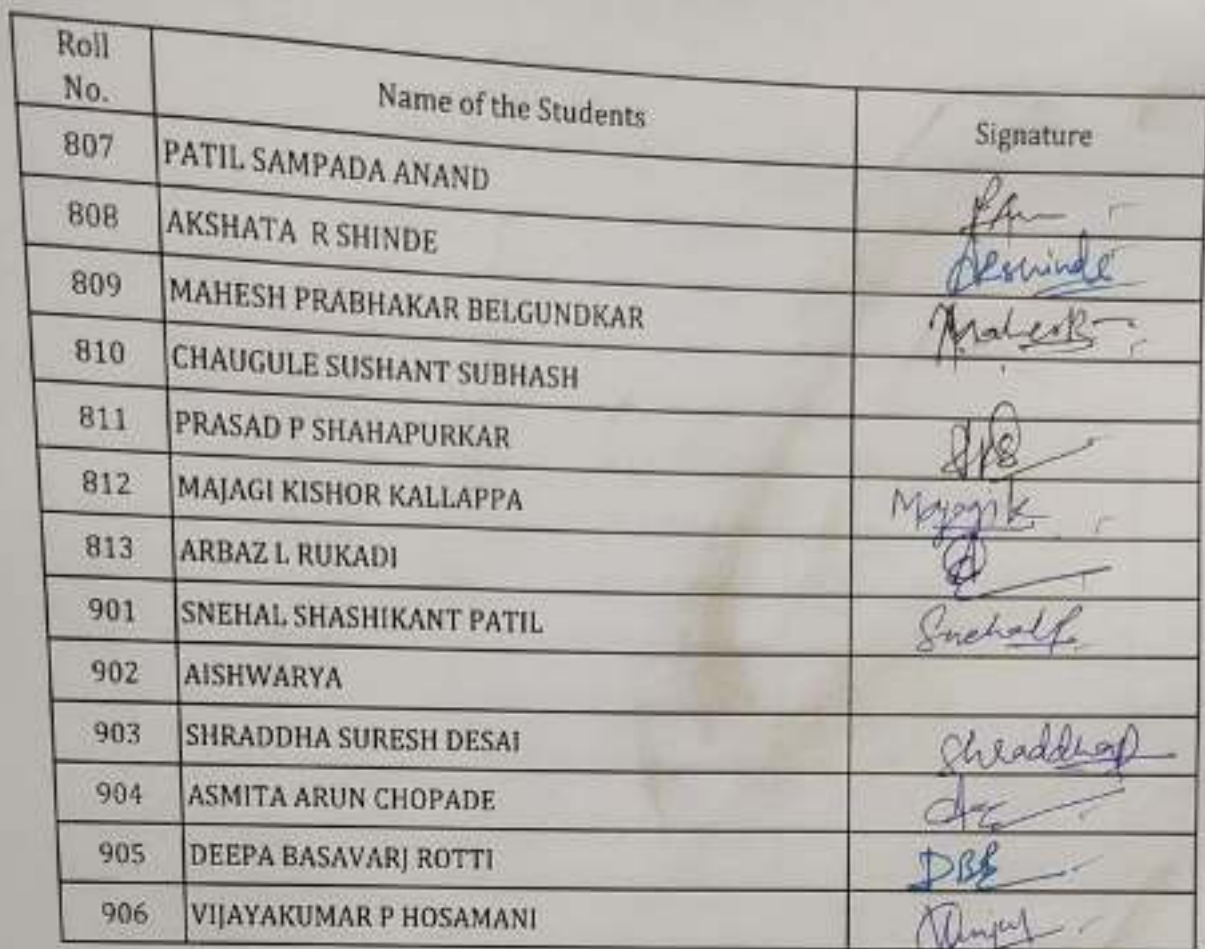 Roll No. Name of the Students Signature
807 PATIL SAMPADA ANAND
808 AKSHATA R SHINDE ARShinde
809 MAHESH PRABHAKAR BELGUNDKAR MaheshB
810 CHAUGULE SUSHANT SUBHASH
811 PRASAD P SHAHAPURKAR
812 MAJAGI KISHOR KALLAPPA MajagiK
813 ARBAZ L RUKADI
901 SNEHAL SHASHIKANT PATIL SnehalP
902 AISHWARYA
903 SHRADDHA SURESH DESAI
904 ASMITA ARUN CHOPADE
905 DEEPA BASAVARJ ROTTI DBR
906 VIJAYAKUMAR P HOSAMANI